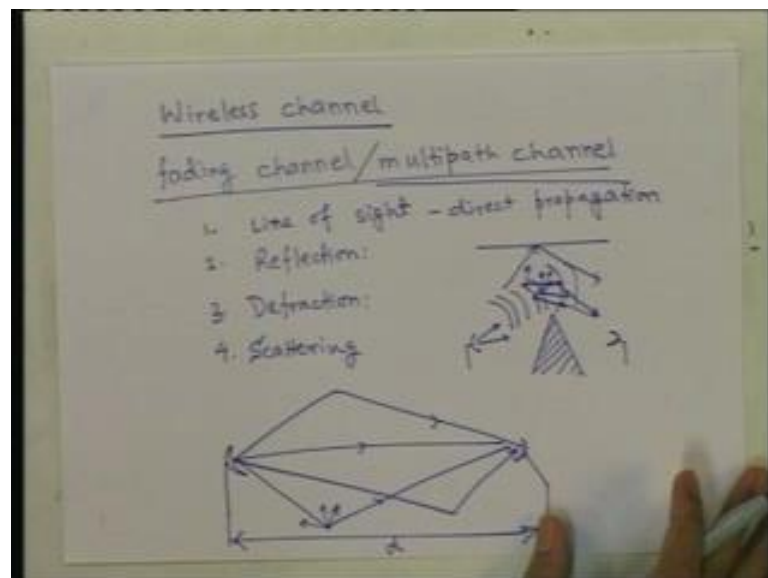 Wireless channel
fading channel/multipath channel
1. Line of sight - direct propagation
2. Reflection:
3. Defraction:
4. Scattering
d